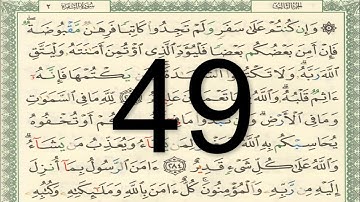 الجزء الثالث سورة البقرة ٢
۞ وَإِن كُنتُمْ عَلَىٰ سَفَرٍ وَلَمْ تَجِدُوا كَاتِبًا فَرِهَٰنٌ مَّقْبُوضَةٌ
فَإِنْ أَمِنَ بَعْضُكُم بَعْضًا فَلْيُؤَدِّ الَّذِي اؤْتُمِنَ أَمَٰنَتَهُ وَلْيَتَّقِ
اللَّهَ رَبَّهُ وَلَا تَكْتُمُوا يَكْتُمْهَا فَإِنَّهُ
ءَاثِمٌ قَلْبُهُ وَاللَّهُ لِلَّهِ مَا فِي السَّمَٰوَٰتِ
وَمَا فِي الْأَرْضِ أَوْ تُخْفُوهُ
يُحَاسِبْكُم بِهِ اللَّهُ وَيُعَذِّبُ مَن يَشَاءُ
وَاللَّهُ عَلَىٰ كُلِّ شَيْءٍ قَدِيرٌ ٢٨٤ ءَامَنَ الرَّسُولُ بِمَا أُنزِلَ
إِلَيْهِ مِن رَّبِّهِ وَالْمُؤْمِنُونَ كُلٌّ ءَامَنَ بِاللَّهِ وَمَلَٰئِكَتِهِ وَكُتُبِهِ
49